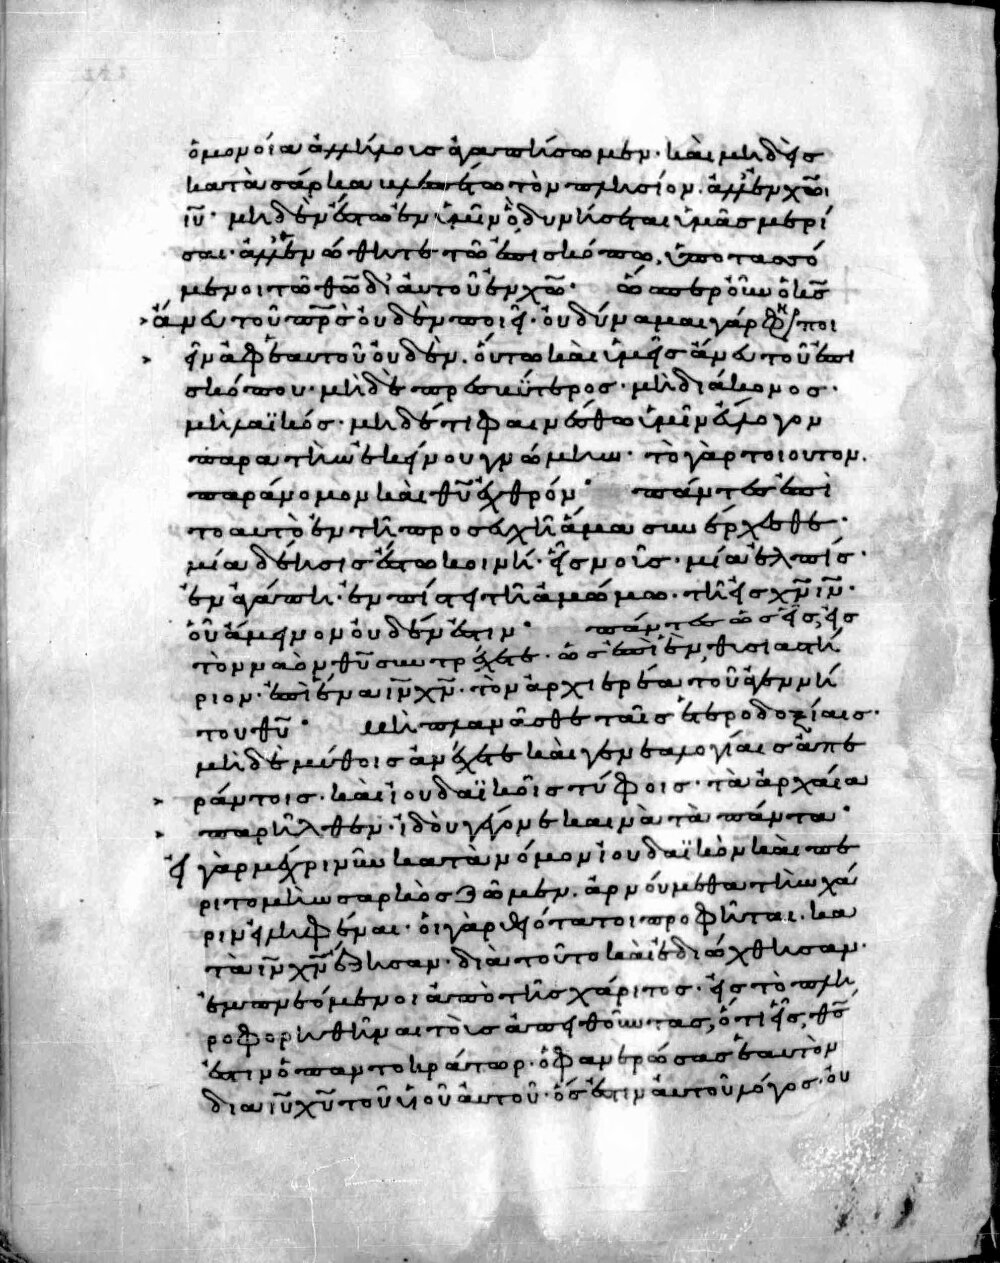 ὁμονοίᾳ ἀλλήλοις ἀγαπήσωμεν· καὶ μηδεὶς
κατὰ σάρκα βλεπέτω τὸν πλησίον. ἀλλ' ἐν χω
ιυ· μηδὲν ἔστω ἐν ὑμῖν ὃ δυνήσεται ὑμᾶς μερί
σαι· ἀλλ' ἑνώθητε τῶ ἐπισκόπω, ὑποτασσό
μενοι τῶ θω δι' αὐτοῦ ἐν χω· ὥσπερ οὖν ὁ κς
ἄνευ τοῦ πρς οὐδὲν ποιεῖ· οὐ δύναμαι γάρ φ ποι
εῖν ἀφ' ἑαυτοῦ οὐδέν. οὕτω καὶ ὑμεῖς ἄνευ τοῦ ἐπι
σκόπου· μὴδὲ πρεσβύτερος· μὴ διάκονος·
μὴ λαϊκός· μηδέ τι φαινέσθω ὑμῖν εὔλογον
παρὰ τὴν ἐκείνου γνώμην· τὸ γὰρ τοιουτον.
παράνομον καὶ θυ ἐχθρόν· πάντες ἐπὶ
τοαυτὸ ἐν τῆ προσευχῆ ἅμα συνέρχεσθε·
μία δέησις ἔστω κοινή· εἷς νοῦς· μία ἐλπίς·
ἐν ἀγάπη· ἐν πίστει τῆ ἀμώμω· τῆ εἰς χν ιν·
οὗ ἄμεινον οὐδέν ἐστιν· πάντες ὡς εἷς, εἰς
τὸν ναὸν θυ συντρέχετε· ὡς ἐπὶ ἓν, θυσιαστή
ριον· ἐπὶ ἕνα ιν χν· τὸν ἀρχιερέα τοῦ ἀγεννή
του θυ· μὴ πλανᾶσθε ταῖς ἑτεροδοξίαις·
μηδὲ μύθοις ἀνέχετε καὶ γενεαλογίαις ἀπε
ράντοις· καὶ ἰουδαϊκοῖς τύφοις· τὰ ἀρχαῖα
παρῆλθεν· ἰδοὺ γέγονε καινὰ τὰ πάντα·
εἰ γὰρ μέχρι νῦν κατὰ νόμον ἰουδαϊκὸν καὶ πε
ριτομὴν σαρκὸς ζῶμεν. ἀρνούμεθα τὴν χά
ριν εἰληφέναι· οἱ γὰρ θειότατοι προφῆται. κα
τὰ ιν χν ἔζησαν· διὰ τοῦτο καὶ ἐδιώχθησαν·
ἐμπνεόμενοι ἀπὸ τῆς χάριτος· εἰς τὸ πλη
ροφορηθῆναι τοὺς ἀπειθοῦντας, ὅτι εἷς, θς
ἐστιν ὁ παντοκράτωρ· ὁ φανερώσας ἑαυτὸν
δια ιυ χυ τοῦ υἱοῦ αὐτοῦ· ὅς ἐστιν αὐτοῦ λόγος· οὐ